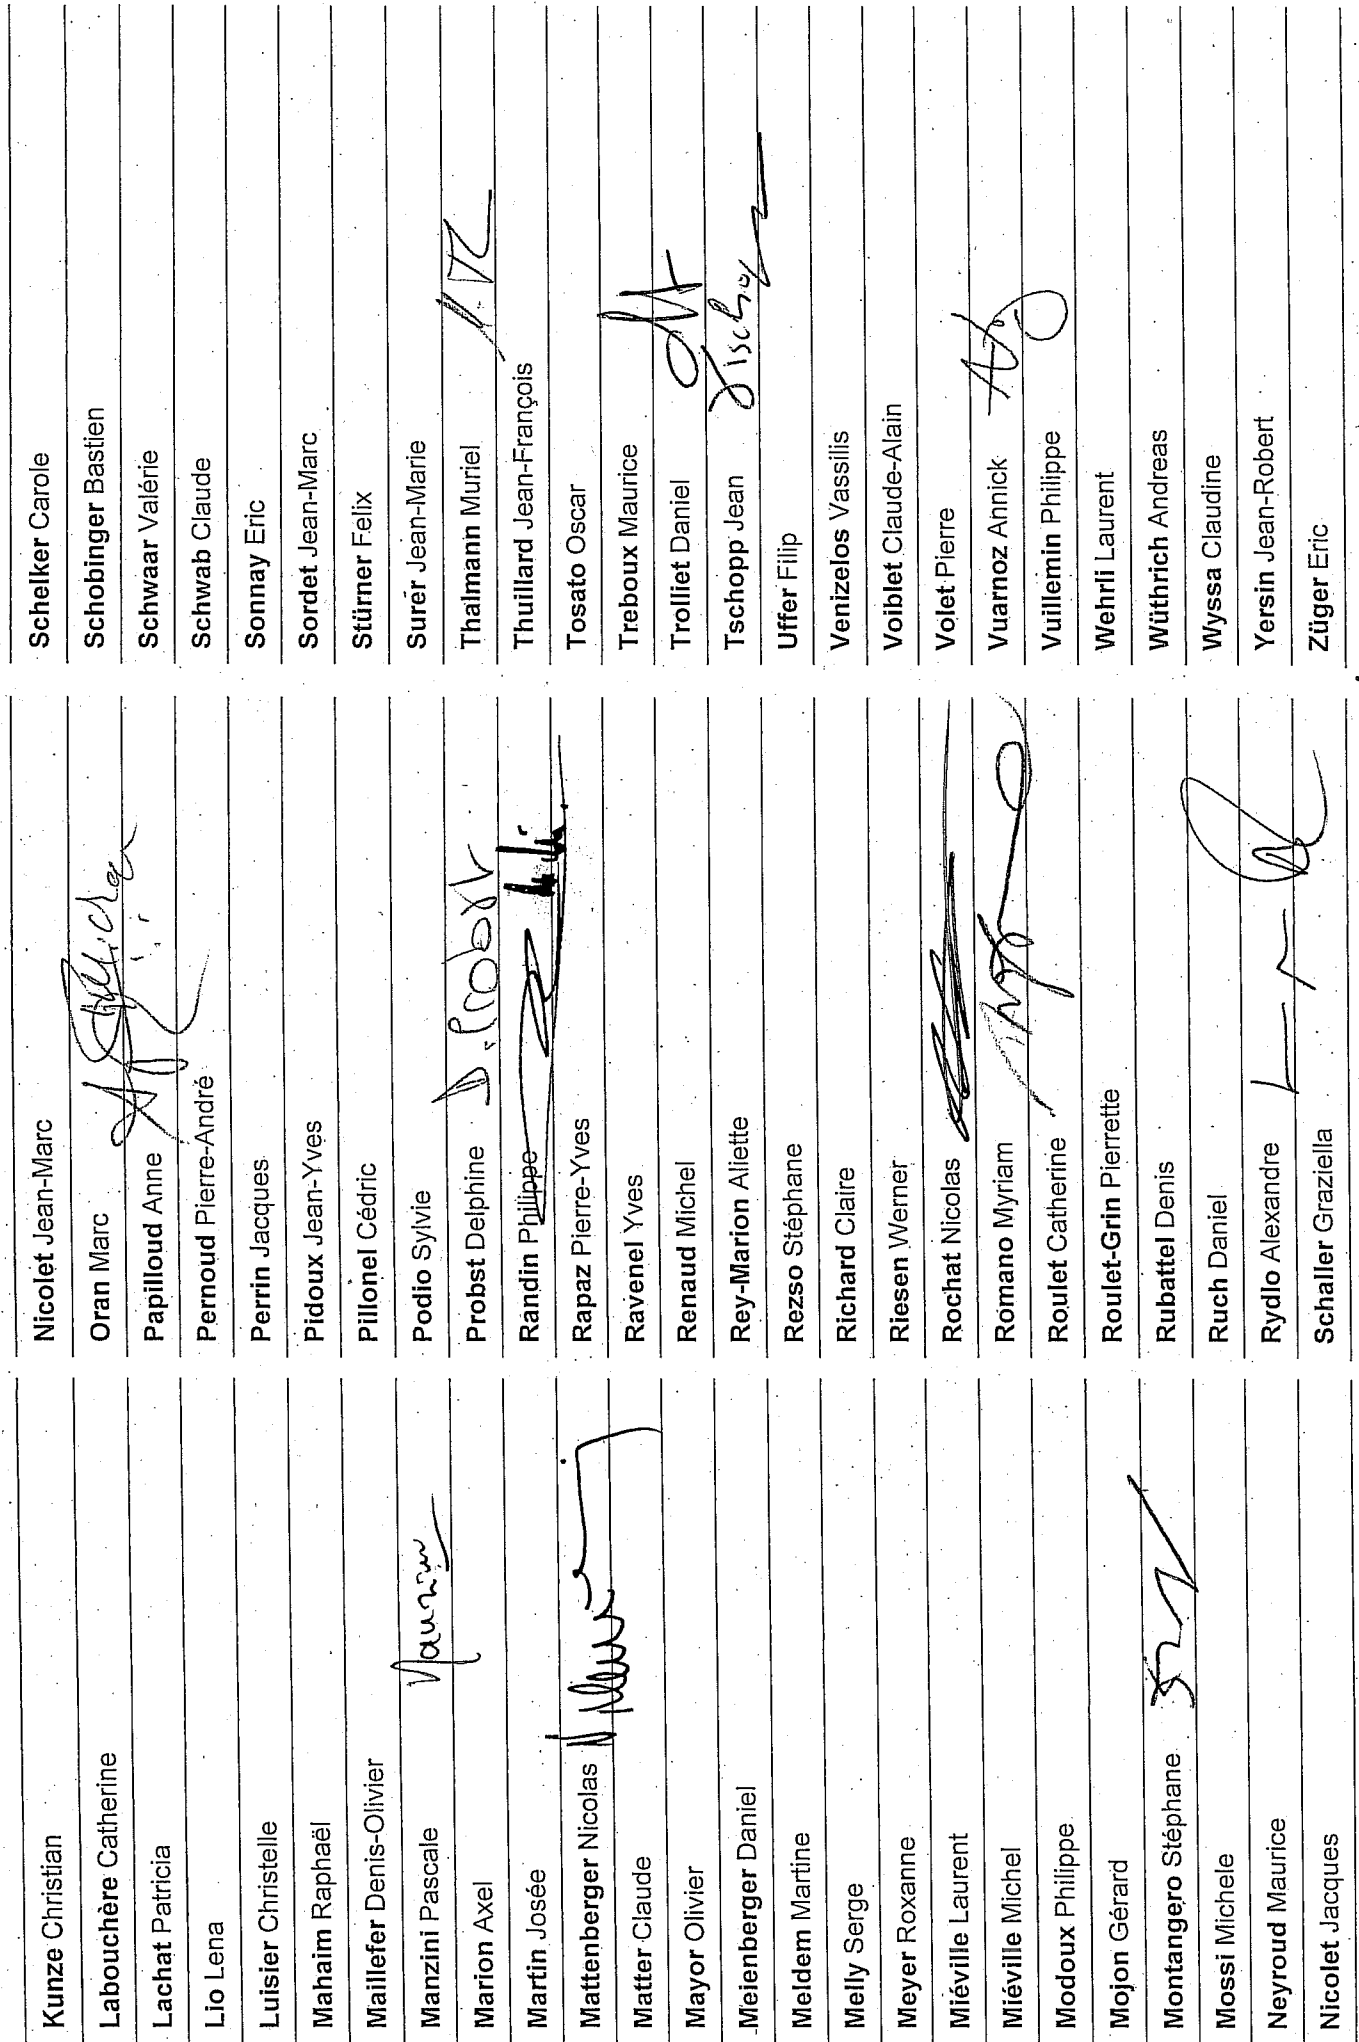 Kunze Christian
Labouchère Catherine
Lachat Patricia
Lio Lena
Luisier Christelle
Mahaim Raphaël
Maillefer Denis-Olivier
Manzini Pascale
Marion Axel
Martin Josée
Mattenberger Nicolas
Matter Claude
Mayor Olivier
Meienberger Daniel
Meldem Martine
Melly Serge
Meyer Roxanne
Miéville Laurent
Miéville Michel
Modoux Philippe
Mojon Gérard
Montangero Stéphane
Mossi Michele
Neyroud Maurice
Nicolet Jacques
Nicolet Jean-Marc
Oran Marc
Papilloud Anne
Pernoud Pierre-André
Perrin Jacques
Pidoux Jean-Yves
Pillonel Cédric
Podio Sylvie
Probst Delphine D. Probst
Randin Philippe
Rapaz Pierre-Yves
Ravenel Yves
Renaud Michel
Rey-Marion Aliette
Rezso Stéphane
Richard Claire
Riesen Werner
Rochat Nicolas
Romano Myriam
Roulet Catherine
Roulet-Grin Pierrette
Rubattel Denis
Ruch Daniel
Rydlo Alexandre
Schaller Graziella
Schelker Carole
Schobinger Bastien
Schwaar Valérie
Schwab Claude
Sonnay Eric
Sordet Jean-Marc
Stürner Felix
Surer Jean-Marie
Thalmann Muriel
Thuillard Jean-François
Tosato Oscar
Treboux Maurice
Trolliet Daniel
Tschopp Jean
Uffer Filip
Venizelos Vassilis
Voiblet Claude-Alain
Volet Pierre
Vuarnoz Annick
Vuillemin Philippe
Wehrli Laurent
Wüthrich Andreas
Wyssa Claudine
Yersin Jean-Robert
Züger Eric